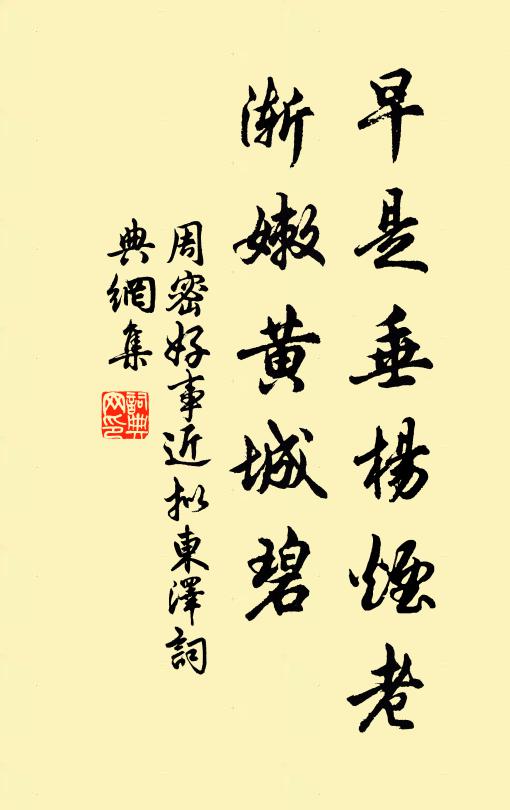 早是垂楊煙老
漸嫩黃城碧
周密好事近拟東澤詞
典網集
詞典網印